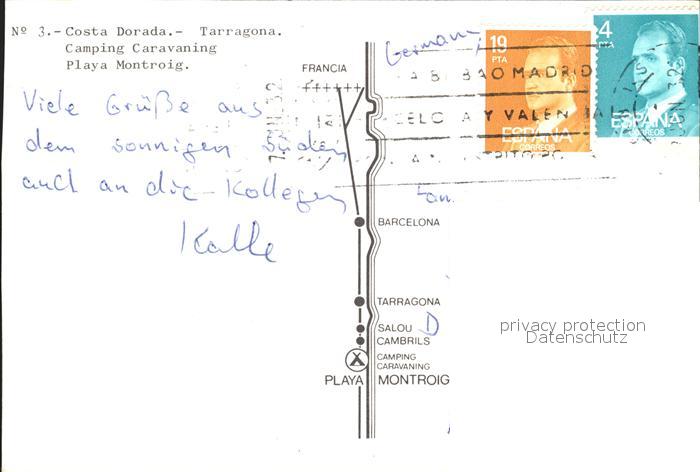 Nº 3.- Costa Dorada.- Tarragona.
Camping Caravaning
Playa Montroig.
Viele Grüße aus
dem sonnigen Süden
auch an die Kollegen
Kalle
Germany
19
PTA
ESPAÑA
CORREOS
4
PTA
ESPAÑA
CORREOS
BAO MADRID
CELO A Y VALEN
FRANCIA
BARCELONA
TARRAGONA
SALOU D
CAMBRILS
CAMPING
CARAVANING
PLAYA MONTROIG
privacy protection
Datenschutz